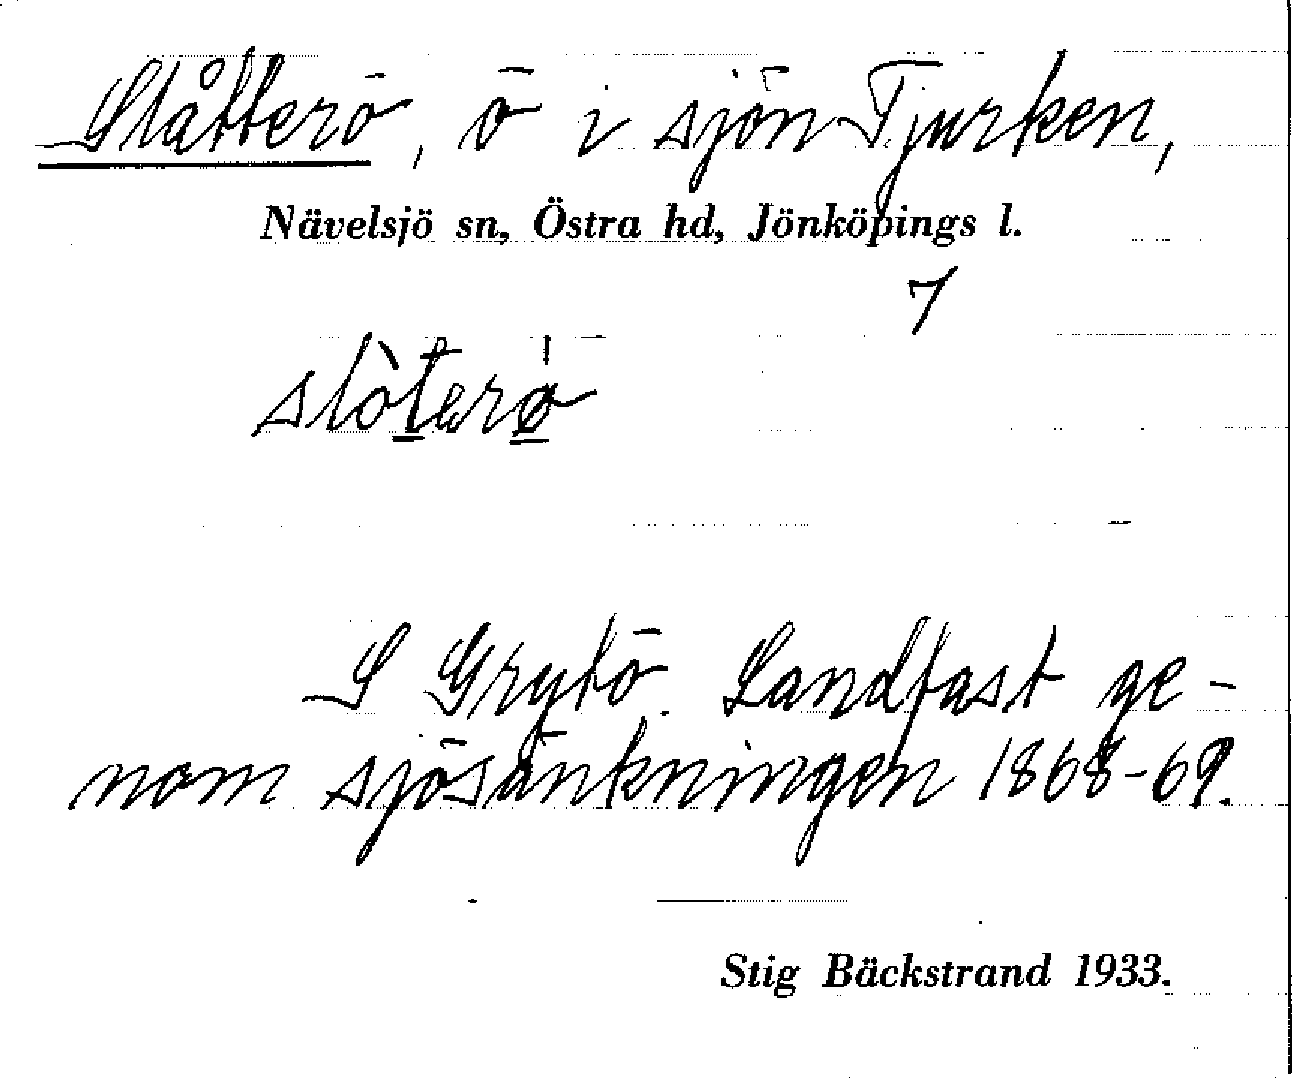 Slåtterö, ö i sjön Tjurken,
Nävelsjö sn, Östra hd, Jönköpings l.
7
slòterø
S Grytö. Landfast ge-
nom sjösänkningen 1868-69.
Stig Bäckstrand 1933.